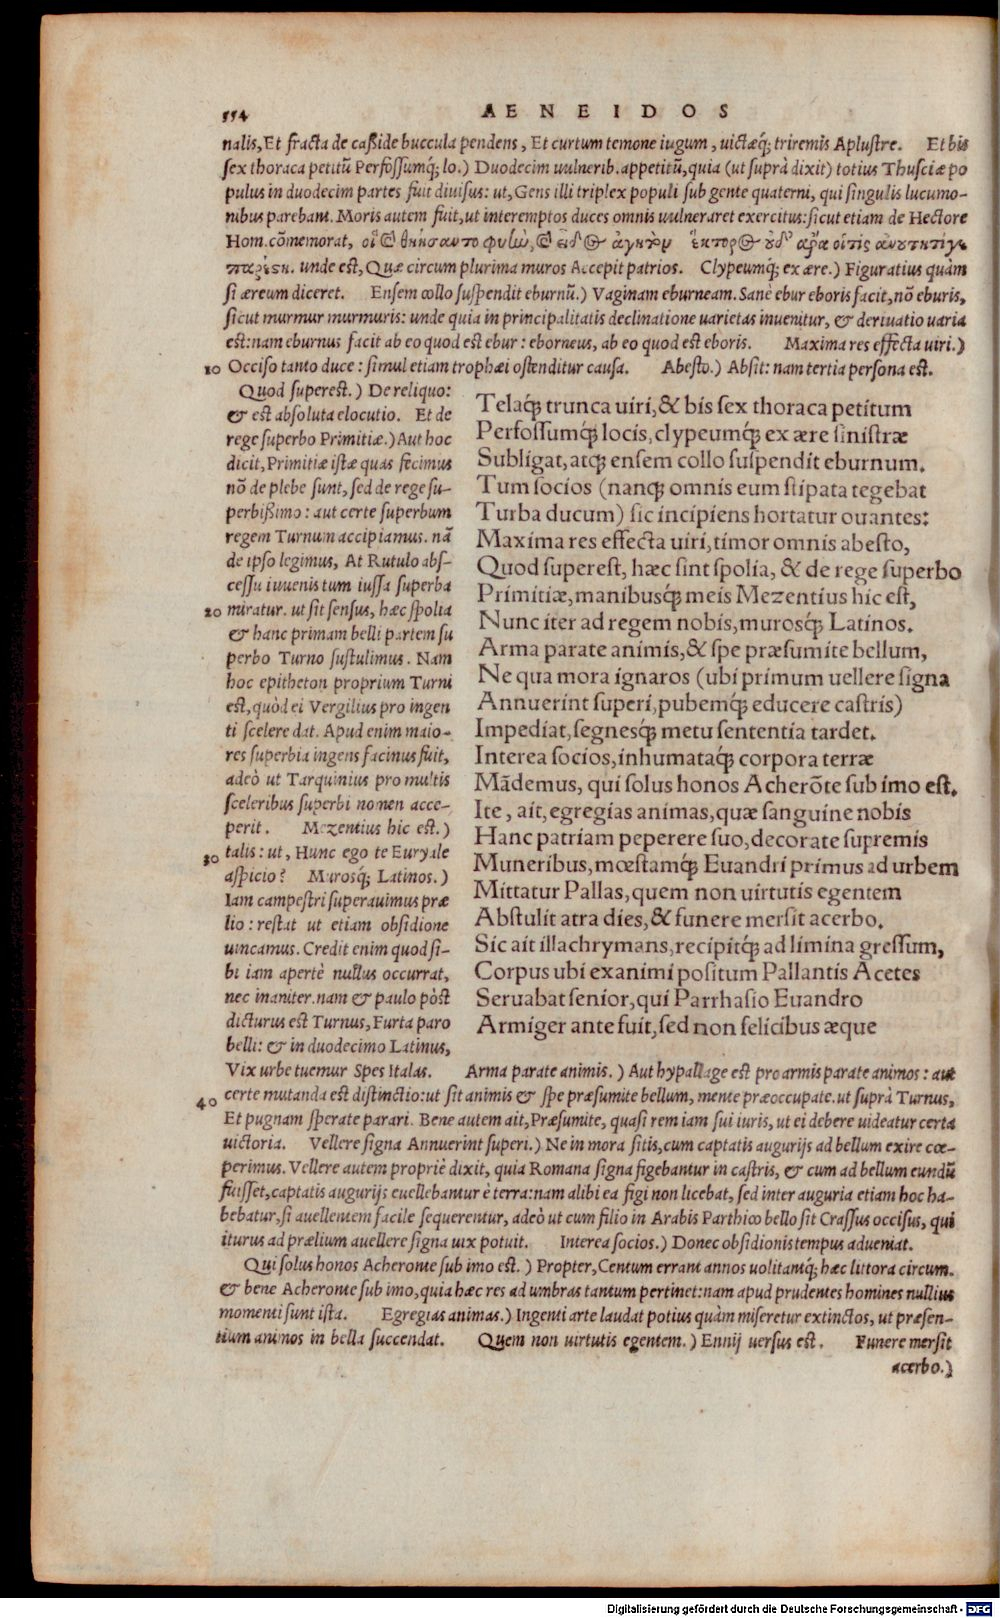 554 AENEIDOS
nalis, Et fracta de casside buccula pendens, Et curtum temone iugum, uictæq; triremis Aplustre. Et bis
sex thoraca petitū Perfossumq; lo.) Duodecim uulnerib. appetitū, quia (ut suprà dixit) totius Thusciæ po
pulus in duodecim partes fuit diuisus: ut, Gens illi triplex populi sub gente quaterni, qui singulis lucumo-
nibus parebant. Moris autem fuit, ut interemptos duces omnis uulneraret exercitus: sicut etiam de Hectore
Hom. cōmemorat, οἳ καὶ θηήσαντο φυὼ, καὶ εἶδος ἀγητὸν ἕκτορος οὐδ' ἄρα οἵτις ἀνουτητί γε
παρέστη. unde est, Quæ circum plurima muros Accepit patrios. Clypeumq; ex ære.) Figuratius quàm
si æreum diceret. Ensem collo suspendit eburnū.) Vaginam eburneam. Sanè ebur eboris facit, nō eburis,
sicut murmur murmuris: unde quia in principalitatis declinatione uarietas inuenitur, & deriuatio uaria
est: nam eburnus facit ab eo quod est ebur: eborneus, ab eo quod est eboris. Maxima res effecta uiri.)
10 Occiso tanto duce: simul etiam trophæi ostenditur causa. Abesto.) Absit: nam tertia persona est.
Quod superest.) De reliquo:
& est absoluta elocutio. Et de
rege superbo Primitiæ.) Aut hoc
dicit, Primitiæ istæ quas fecimus
nō de plebe sunt, sed de rege su-
perbissimo: aut certe superbum
regem Turnum accipiamus. nā
de ipso legimus, At Rutulo abs-
cessu iuuenis tum iussa superba
20 miratur. ut sit sensus, hæc spolia
& hanc primam belli partem su
perbo Turno sustulimus. Nam
hoc epitheton proprium Turni
est, quòd ei Vergilius pro ingen
ti scelere dat. Apud enim maio-
res superbia ingens facinus fuit,
adeò ut Tarquinius pro multis
sceleribus superbi nomen acce-
perit. Mezentius hic est.)
30 talis: ut, Hunc ego te Euryale
aspicio? Murosq; Latinos.)
Iam campestri superauimus præ
lio: restat ut etiam obsidione
uincamus. Credit enim quod si-
bi iam apertè nullus occurrat,
nec inaniter. nam & paulo pòst
dicturus est Turnus, Furta paro
belli: & in duodecimo Latinus,
Telaq; trunca uiri, & bis sex thoraca petitum
Perfossumq; locis, clypeumq; ex ære sinistræ
Subligat, atq; ensem collo suspendit eburnum.
Tum socios (nanq; omnis eum stipata tegebat
Turba ducum) sic incipiens hortatur ouantes:
Maxima res effecta uiri, timor omnis abesto,
Quod superest, hæc sint spolia, & de rege superbo
Primitiæ, manibusq; meis Mezentius hic est,
Nunc iter ad regem nobis, murosq; Latinos.
Arma parate animis, & spe præsumite bellum,
Ne qua mora ignaros (ubi primum uellere signa
Annuerint superi, pubemq; educere castris)
Impediat, segnesq; metu sententia tardet.
Interea socios, inhumataq; corpora terræ
Mādemus, qui solus honos Acherōte sub imo est.
Ite, ait, egregias animas, quæ sanguine nobis
Hanc patriam peperere suo, decorate supremis
Muneribus, mœstamq; Euandri primus ad urbem
Mittatur Pallas, quem non uirtutis egentem
Abstulit atra dies, & funere mersit acerbo.
Sic ait illachrymans, recipitq; ad limina gressum,
Corpus ubi exanimi positum Pallantis Acetes
Seruabat senior, qui Parrhasio Euandro
Armiger ante fuit, sed non felicibus æque
Vix urbe tuemur Spes Italas. Arma parate animis.) Aut hypallage est pro armis parate animos: aut
40 certe mutanda est distinctio: ut sit animis & spe præsumite bellum, mente præoccupate. ut suprà Turnus,
Et pugnam sperate parari. Bene autem ait, Præsumite, quasi rem iam sui iuris, ut ei debere uideatur certa
uictoria. Vellere signa Annuerint superi.) Ne in mora sitis, cum captatis augurijs ad bellum exire cœ-
perimus. Vellere autem propriè dixit, quia Romana signa figebantur in castris, & cum ad bellum eundū
fuisset, captatis augurijs euellebantur è terra: nam alibi ea figi non licebat, sed inter auguria etiam hoc ha-
bebatur, si auellentem facile sequerentur, adeò ut cum filio in Arabis Parthico bello sit Crassus occisus, qui
iturus ad prælium auellere signa uix potuit. Interea socios.) Donec obsidionis tempus adueniat.
Qui solus honos Acheronte sub imo est.) Propter, Centum errant annos uolitantq; hæc littora circum.
& bene Acheronte sub imo, quia hæc res ad umbras tantum pertinet: nam apud prudentes homines nullius
momenti sunt ista. Egregias animas.) Ingenti arte laudat potius quàm miseretur extinctos, ut præsen-
tium animos in bella succendat. Quem non uirtutis egentem.) Ennij uersus est. Funere mersit
acerbo.)
Digitalisierung gefördert durch die Deutsche Forschungsgemeinschaft - DFG